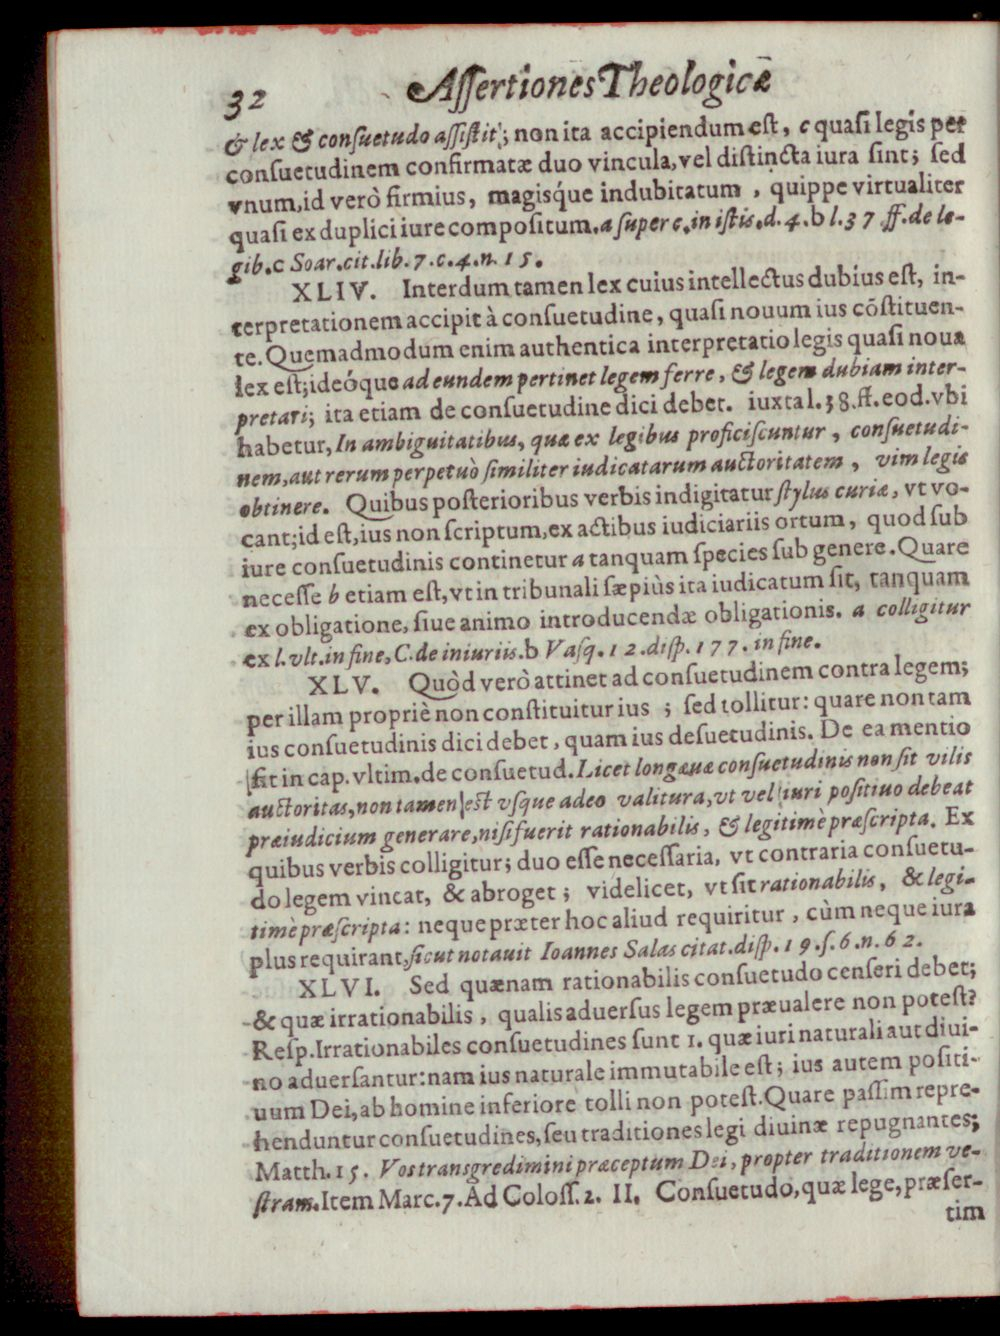 32 Aſſertiones Theologicæ
& lex & conſuetudo aſſiſtit; non ita accipiendum eſt, c quaſi legis per
conſuetudinem confirmatæ duo vincula, vel diſtincta iura ſint; ſed
vnum, id verò firmius, magisq́ue indubitatum, quippe virtualiter
quaſi ex duplici iure compoſitum. a ſuper c. in iſtis. d. 4. b l. 37 ff. de le-
gib. c Soar. cit. lib. 7. c. 4. n. 15.
XLIV. Interdum tamen lex cuius intellectus dubius eſt, in-
terpretationem accipit à conſuetudine, quaſi nouum ius cõſtituen-
te. Quemadmodum enim authentica interpretatio legis quaſi noua
lex eſt; ideóque ad eundem pertinet legem ferre, & legem dubiam inter-
pretari; ita etiam de conſuetudine dici debet. iuxta l. 38. ff. eod. vbi
habetur, In ambiguitatibus, quæ ex legibus proficiſcuntur, conſuetudi-
nem, aut rerum perpetuò ſimiliter iudicatarum auctoritatem, vim legis
obtinere. Quibus poſterioribus verbis indigitatur ſtylus curiæ, vt vo-
cant; id eſt, ius non ſcriptum, ex actibus iudiciariis ortum, quod ſub
iure conſuetudinis continetur a tanquam ſpecies ſub genere. Quare
neceſſe b etiam eſt, vt in tribunali ſæpiùs ita iudicatum ſit, tanquam
ex obligatione, ſiue animo introducendæ obligationis. a colligitur
ex l. vlt. in fine, C. de iniuriis. b Vaſq. 12. diſp. 177. in fine.
XLV. Quòd verò attinet ad conſuetudinem contra legem;
per illam propriè non conſtituitur ius ; ſed tollitur: quare non tam
ius conſuetudinis dici debet, quam ius deſuetudinis. De ea mentio
fit in cap. vltim. de conſuetud. Licet longæuæ conſuetudinis non ſit vilis
auctoritas, non tamen eſt vſque adeo valitura, vt vel iuri poſitiuo debeat
præiudicium generare, niſi fuerit rationabilis, & legitimè præſcripta. Ex
quibus verbis colligitur; duo eſſe neceſſaria, vt contraria conſuetu-
do legem vincat, & abroget; videlicet, vt ſit rationabilis, & legi-
timè præſcripta: neque præter hoc aliud requiritur, cùm neque iura
plus requirant, ſicut notauit Ioannes Salas citat. diſp. 19. ſ. 6. n. 62.
XLVI. Sed quænam rationabilis conſuetudo cenſeri debet;
& quæ irrationabilis, qualis aduerſus legem præualere non poteſt?
Reſp. Irrationabiles conſuetudines ſunt 1. quæ iuri naturali aut diui-
no aduerſantur: nam ius naturale immutabile eſt; ius autem poſiti-
uum Dei, ab homine inferiore tolli non poteſt. Quare paſſim repre-
henduntur conſuetudines, ſeu traditiones legi diuinæ repugnantes;
Matth. 15. Vos transgredimini præceptum Dei, propter traditionem ve-
ſtram. Item Marc. 7. Ad Coloſſ. 2. II. Conſuetudo, quæ lege, præſer-
tim